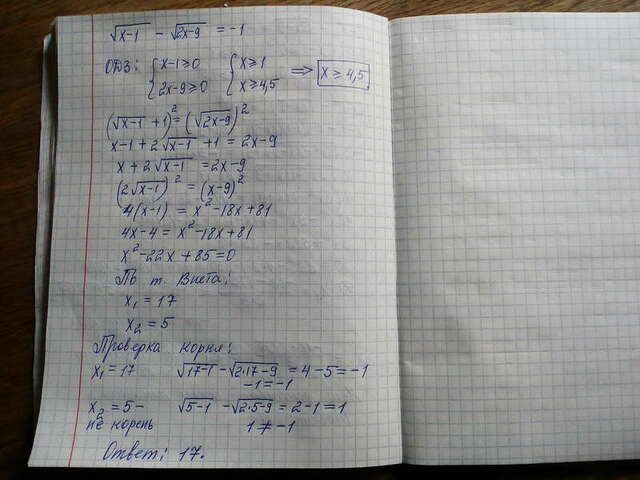 √x-1 - √2x-9 = -1
ОДЗ: { x-1≥0 { x≥1
2x-9≥0 x≥4,5 ⇒ x≥4,5
(√x-1 +1)² = (√2x-9)²
x-1+2√x-1 +1 = 2x-9
x+2√x-1 = 2x-9
(2√x-1)² = (x-9)²
4(x-1) = x²-18x+81
4x-4 = x²-18x+81
x²-22x+85=0
По т. Виета:
x₁ = 17
x₂ = 5
Проверка корня:
x₁ = 17 √17-1 - √2·17-9 = 4-5=-1
-1=-1
x₂ = 5- √5-1 - √2·5-9 = 2-1=1
не корень 1≠-1
Ответ: 17.